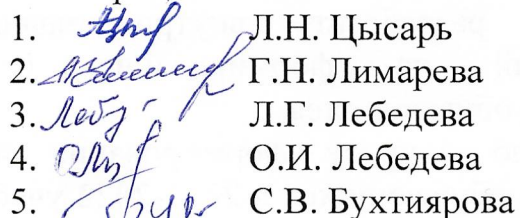 1. Л.Н. Цысарь
2. Г.Н. Лимарева
3. Л.Г. Лебедева
4. О.И. Лебедева
5. С.В. Бухтиярова